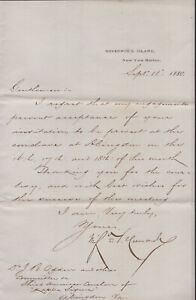 GOVERNOR'S ISLAND,
NEW YORK HARBOR,
Sept. 11", 1880.
Gentlemen:
I regret that my engagements
prevent acceptance of your
invitation to be present at the
conclave at Abingdon on the
16, 17th and 18th of this month
Thanking you for the cour-
tesy, and with best wishes for
the success of the meeting
I am Very truly,
Yours
Committee on
Abingdon Va